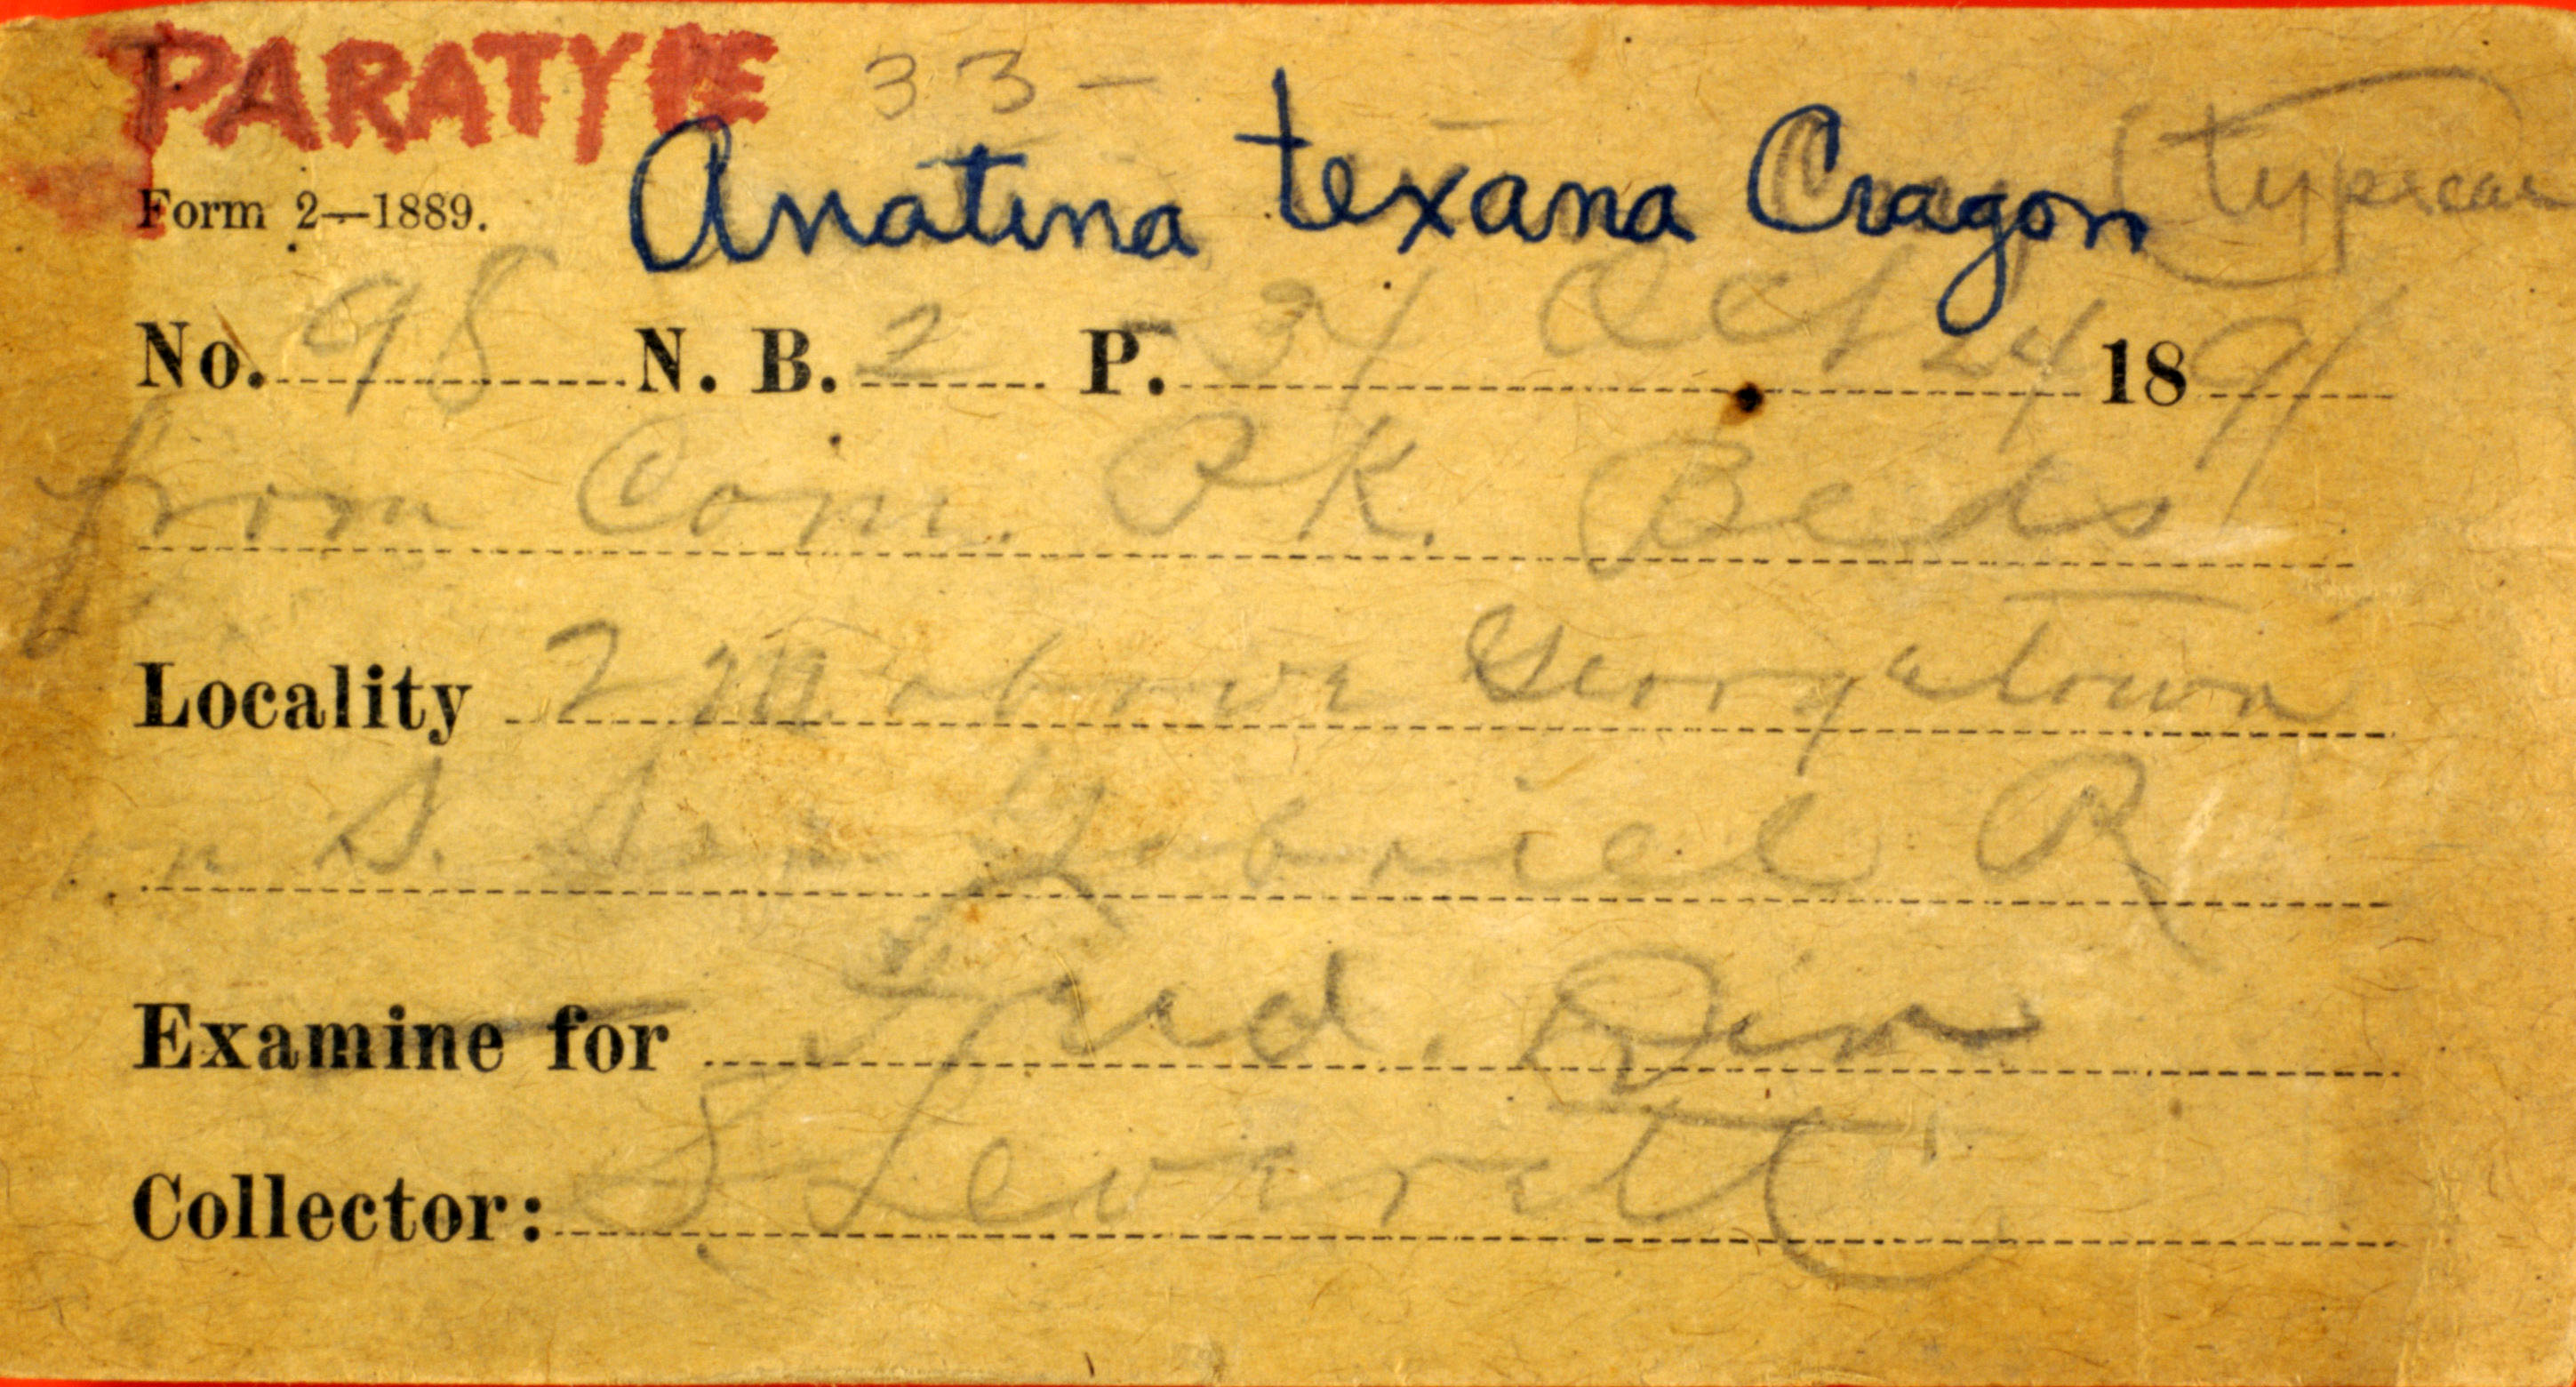 PARATYPE 33 —
Anatina texana Cragon (typical
Form 2—1889.
No. 98 N. B. 2 P. 34 Oct 24 1891
from Com. PK. Beds
Locality 2 M above Georgetown
in S. San Gabriel R
Examine for
Collector: S Leverett